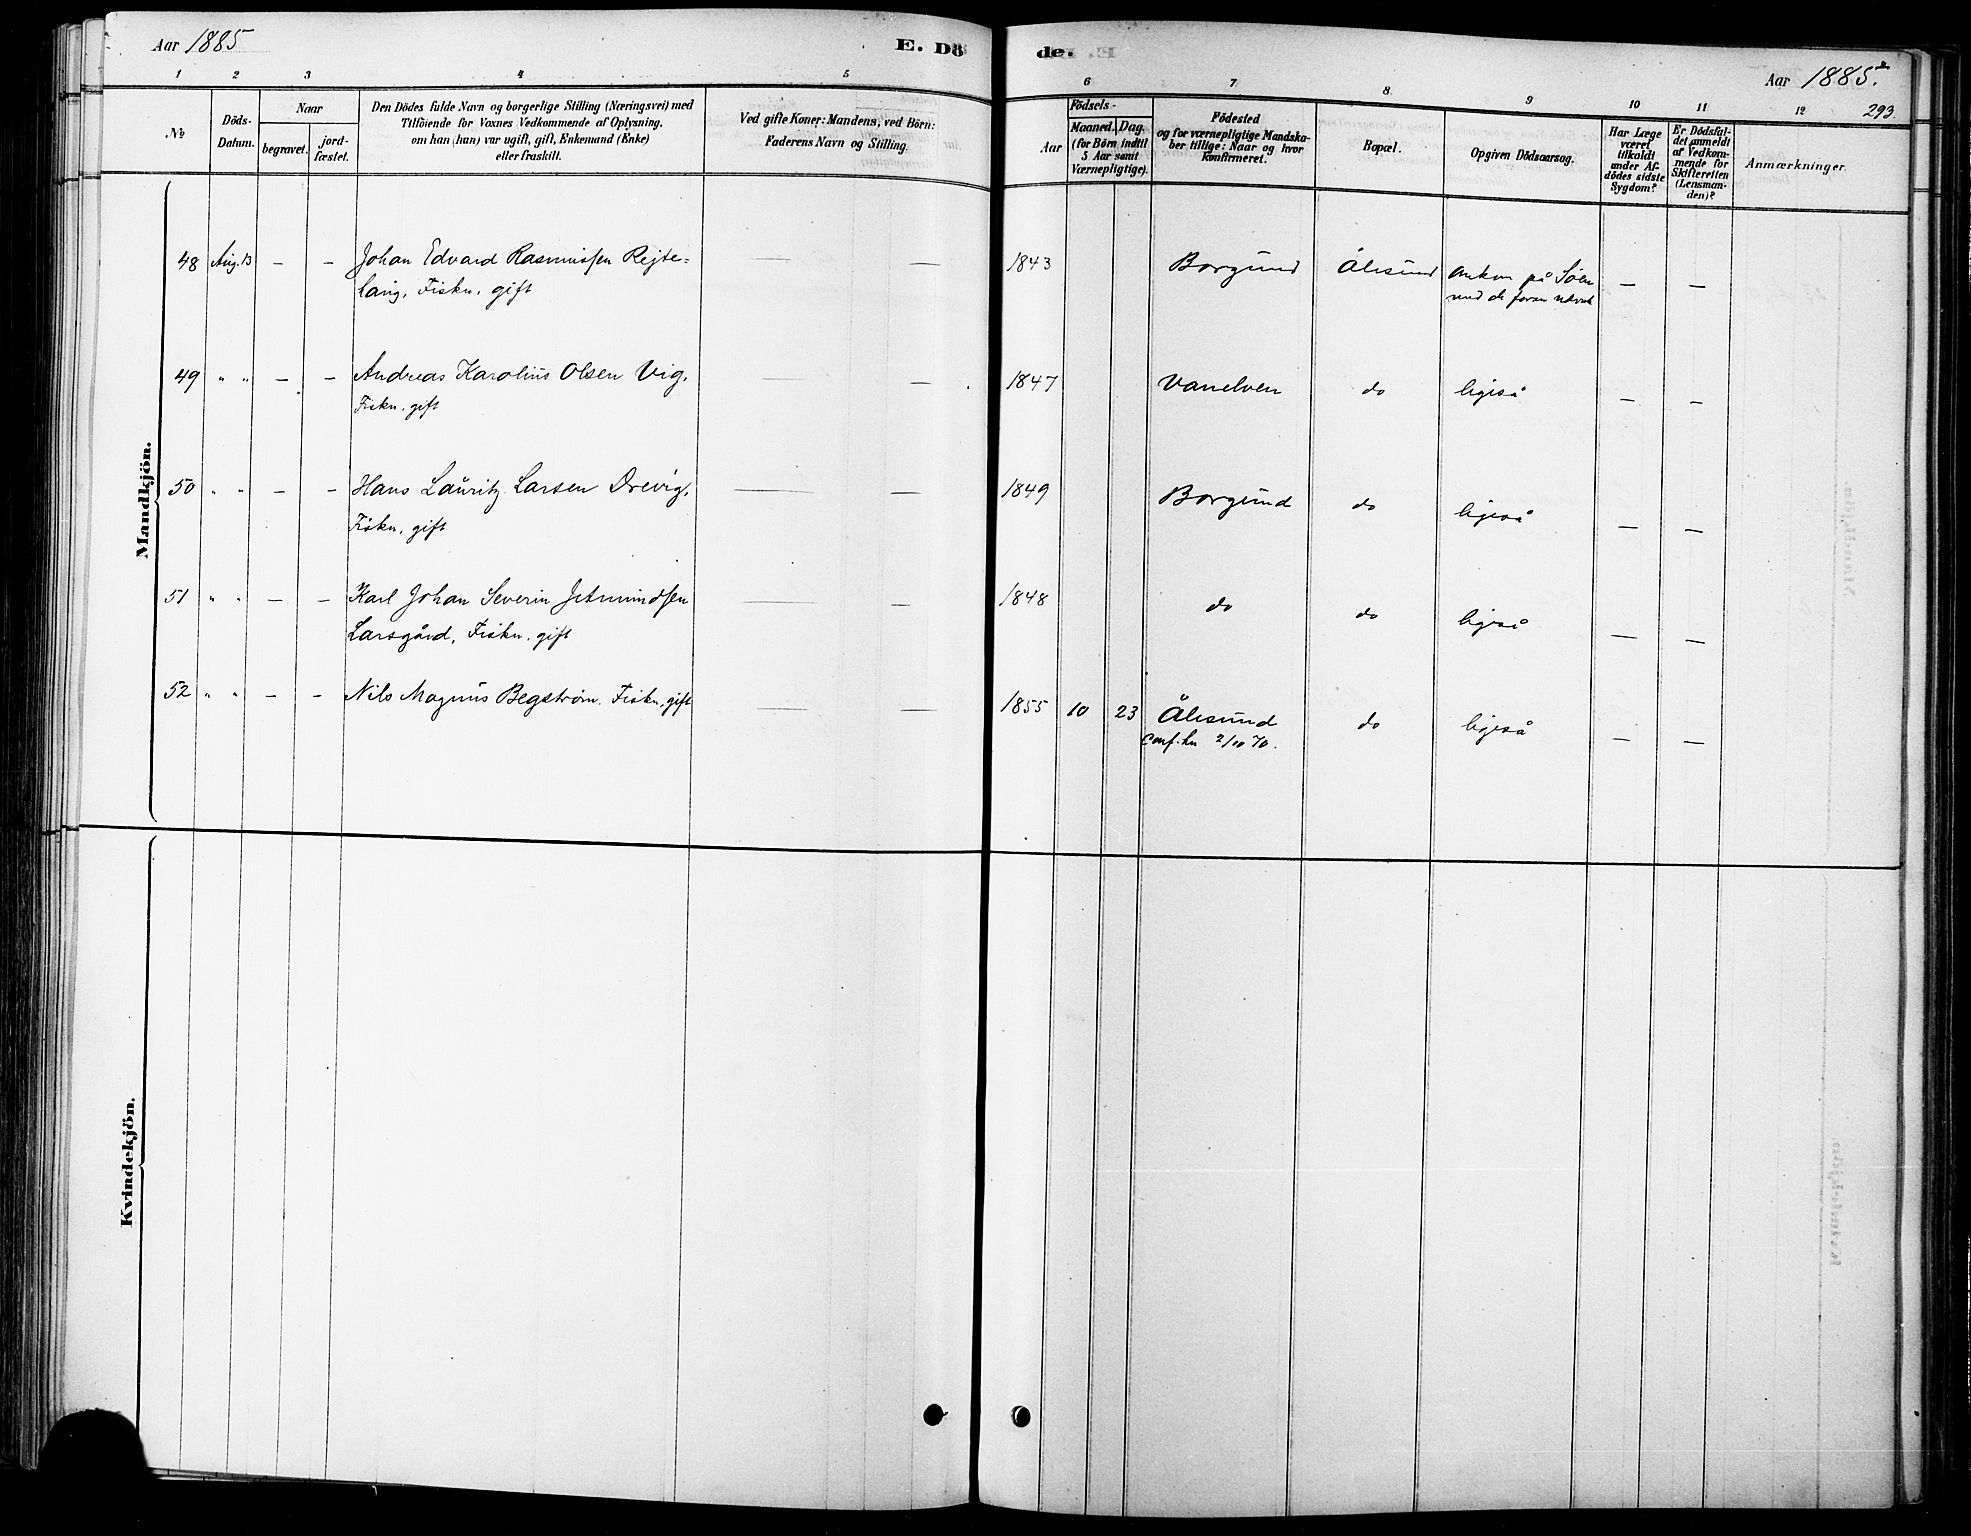 Aar 1885
E. Dö
de.
Aar 1885.
293.
1 2 3 4 5
6 7 8 9 10 11 12
No
Döds-
Datum.
Naar
begravet.
jord-
fæstet.
Den Dödes fulde Navn og borgerlige Stilling (Næringsvei) med
Tilföiende for Voxnes Vedkommende af Oplysning,
om han (hun) var ugift, gift, Enkemand (Enke)
eller fraskilt.
Ved gifte Koner: Mandens, ved Börn:
Faderens Navn og Stilling.
Födsels-
Aar
Maaned. Dag.
(for Börn indtil
5 Aar samt
Værnepligtige).
Födested
og for værnepligtige Mandska-
ber tillige: Naar og hvor
Konfirmeret.
Bopæl.
Opgiven Dödsaarsag.
Har Læge
været
tilkaldt
under Af-
dödes sidste
Sygdom?
Er Dödsfal-
det anmeldt
af Vedkom-
mende for
Skifteretten
(Lensman-
den)?
Anmærkninger.
Mandkjön.
48 Aug. 13 — — Johan Edvard Rasmussen Rejte= — — 1843 Borgund Ålesund omkom på Søen — —
lang, Fiskr. gift
med de foran
49 " " — — Andreas Karolius Olsen Vig, — — 1847 Vanelven do ligeså — —
Fiskr. gift
50 " " — — Hans Lauritz Larsen Drevig, — — 1849 Borgund do ligeså — —
Fiskr. gift
51 " " — — Karl Johan Severin Jetmundsen — — 1848 do do ligeså — —
Larsgård, Fiskr. gift
52 " " — — Nils Magnus Begstrøm. Fiskr. gift — — 1855 10 23 Ålesund do ligeså — —
Conf. hr 2/10 70.
Kvindekjön.